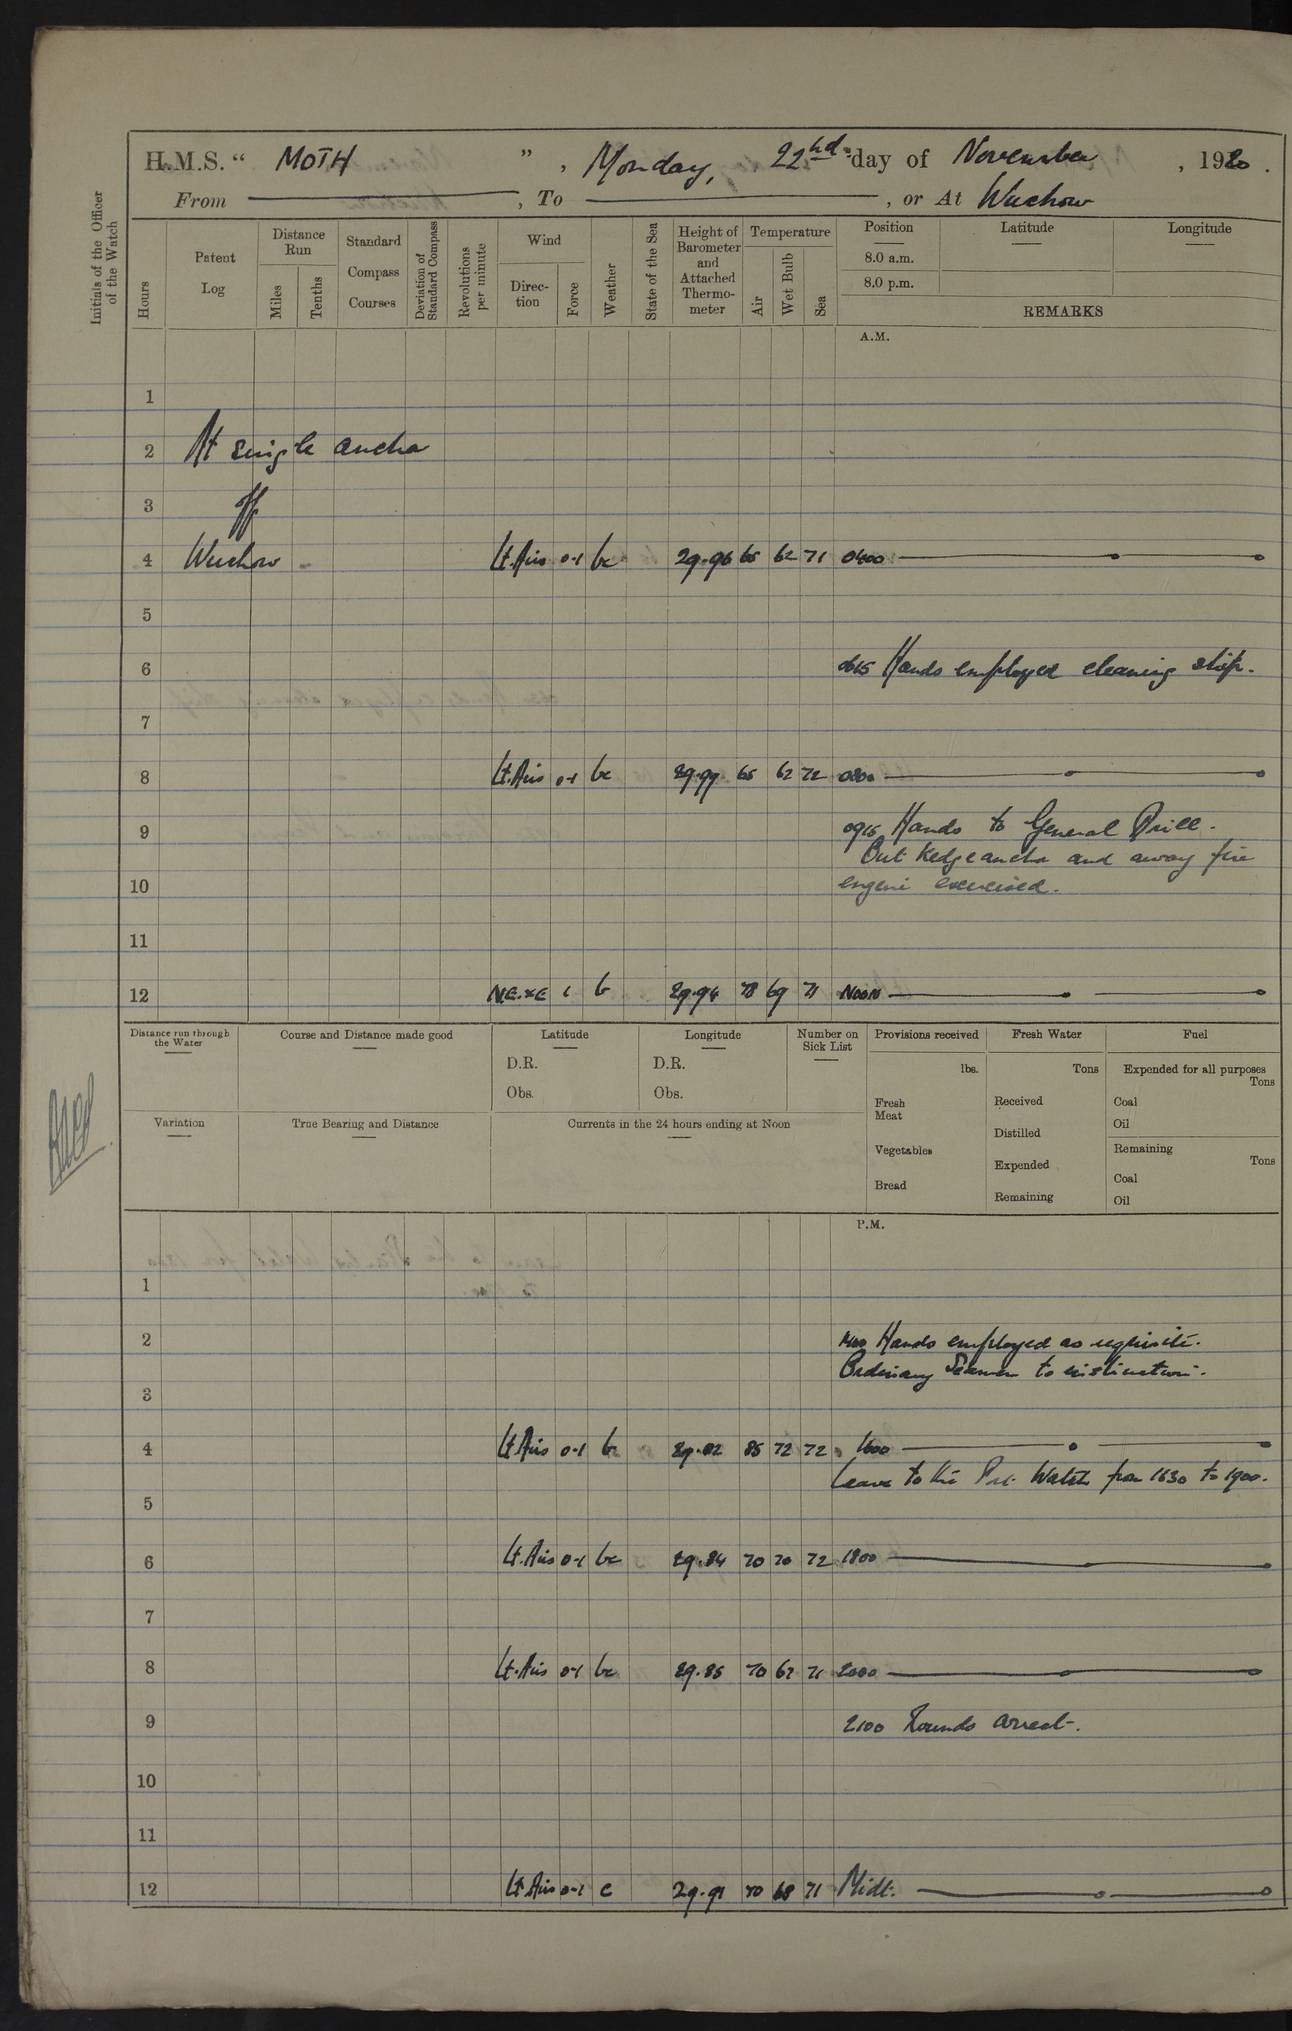 H.M.S. “ MOTH ” , Monday, 22nd day of November , 1920 .
From , To , or At Wuchow
Initials of the Officer of the Watch
Hours
Patent Log
Distance Run
Miles
Tenths
Standard Compass Courses
Deviation of Standard Compass
Revolutions per minute
Wind
Direc-tion
Force
Weather
State of the Sea
Height of Barometer and Attached Thermo-meter
Temperature
Air
Wet Bulb
Sea
Position
8.0 a.m.
8.0 p.m.
Latitude
Longitude
REMARKS
A.M.
1
2 At single anchor
3 off
4 Wuchow Lt. Airs 0-1 bc 29.96 65 62 71 0400
5
6 0615 Hands employed cleaning ship.
7
8 Lt. Airs 0-1 bc 29.99 65 62 72 0800
9 0915 Hands to General Drill.
Out Kedge anchor and away fire
10 engine exercised.
11
12 N.E.xE 1 b 29.94 78 69 71 NOON
Distance run through the Water
Course and Distance made good
Latitude
D.R.
Obs.
Longitude
D.R.
Obs.
Number on Sick List
Provisions received
lbs.
Fresh Meat
Vegetables
Bread
Fresh Water
Tons
Received
Distilled
Expended
Remaining
Fuel
Expended for all purposes
Tons
Coal
Oil
Remaining
Tons
Coal
Oil
Variation
True Bearing and Distance
Currents in the 24 hours ending at Noon
P.M.
1
2 1400 Hands employed as requisite.
Ordinary Seamen to instruction.
3
4 Lt. Airs 0-1 b 29.82 85 72 72 1600
Leave to the Port Watch from 1630 to 1900.
5
6 Lt. Airs 0-1 bc 29.84 70 70 72 1800
7
8 Lt. Airs 0-1 bc 29.85 70 67 71 2000
9 2100 Rounds correct.
10
11
12 Lt. Airs 0-1 c 29.91 70 68 71 Midt.